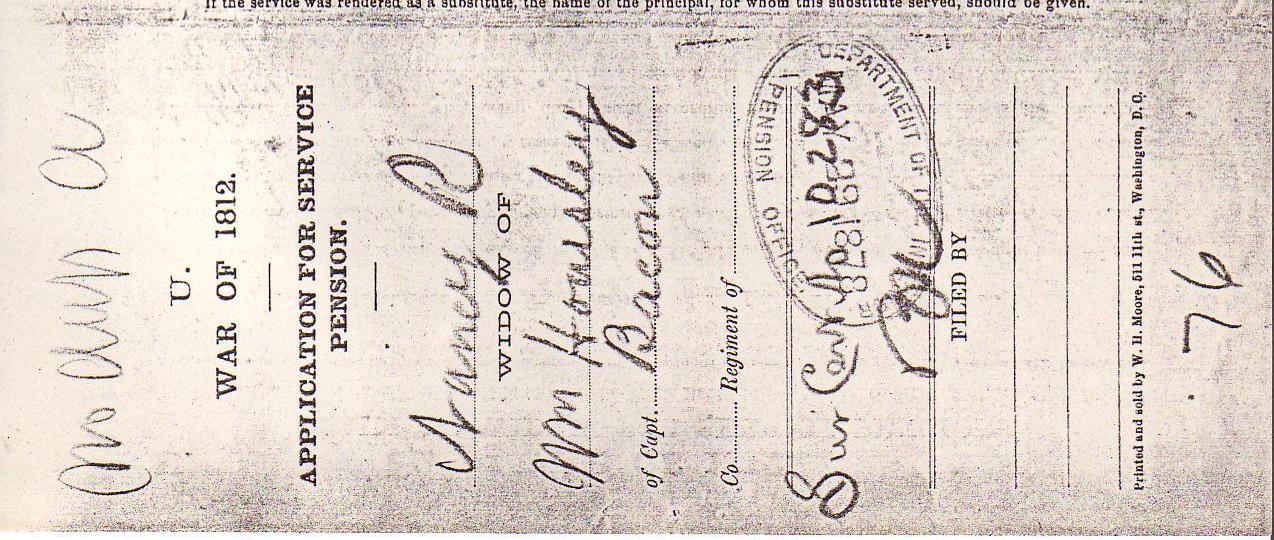 If the service was rendered as a substitute, the name of the principal, for whom this substitute served, should be given.
U.
WAR OF 1812.
APPLICATION FOR SERVICE
PENSION.
Nancy R
WIDOW OF
Wm Housley
of Capt. Bacon
Co. Regiment of
Sur Cert No 10283
DEPARTMENT OF
PENSION OFFICE
MAY 29 1878
FILED BY
Printed and sold by W. H. Moore, 511 11th st., Washington, D. C.
76